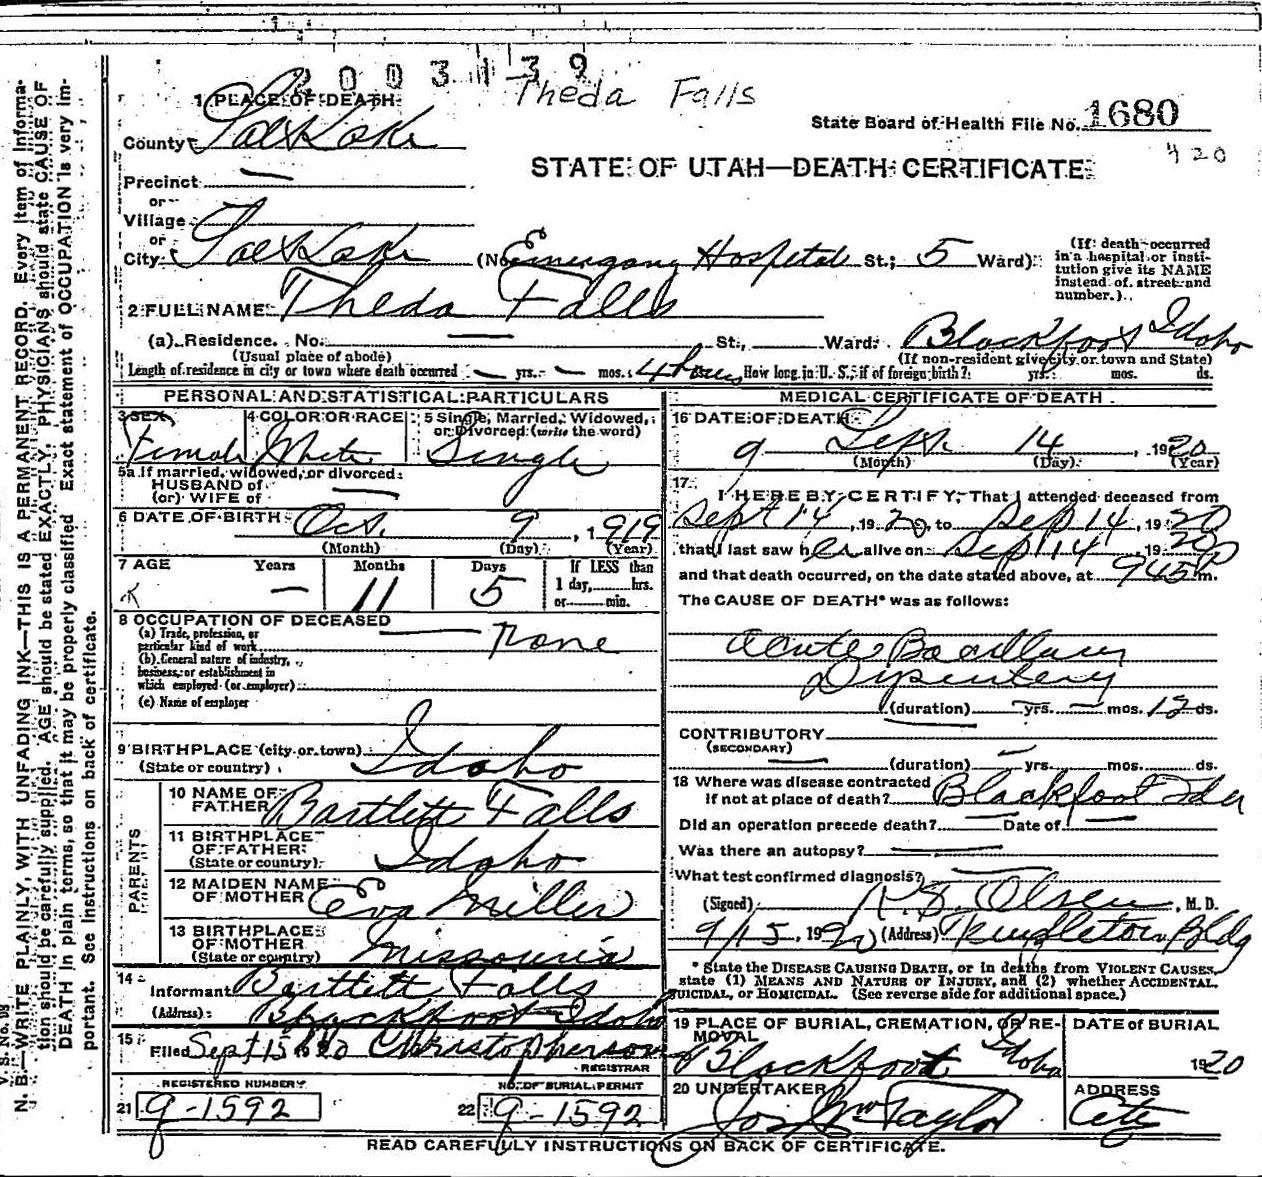 2003139
Theda Falls
1 PLACE OF DEATH
County Salt Lake
State Board of Health File No. 1680
420
STATE OF UTAH—DEATH CERTIFICATE
Precinct —
or
Village
or
City Salt Lake (No. Emergency Hospital St.; 5 Ward)
(If death occurred in a hospital or institution give its NAME instead of street and number.)
2 FULL NAME Theda Falls
(a) Residence. No. — St., Ward. Blackfoot Idaho
(Usual place of abode) (If non-resident give city or town and State)
Length of residence in city or town where death occurred — yrs. — mos. 4 hours How long in U. S., if of foreign birth? yrs. mos. ds.
PERSONAL AND STATISTICAL PARTICULARS
3 SEX 4 COLOR OR RACE 5 Single, Married, Widowed, or Divorced (write the word)
Female White Single
5a If married, widowed, or divorced
HUSBAND of
(or) WIFE of —
6 DATE OF BIRTH Oct. 9, 1919
(Month) (Day) (Year)
7 AGE Years Months Days If LESS than
1 day, hrs.
or min.
— 11 5
8 OCCUPATION OF DECEASED
(a) Trade, profession, or particular kind of work — none
(b) General nature of industry, business, or establishment in which employed (or employer)
(c) Name of employer
9 BIRTHPLACE (city or town)
(State or country) Idaho
PARENTS
10 NAME OF FATHER Bartlett Falls
11 BIRTHPLACE OF FATHER (State or country) Idaho
12 MAIDEN NAME OF MOTHER Eva Miller
13 BIRTHPLACE OF MOTHER (State or country) Missouria
14 Informant Bartlett Falls
(Address) Blackfoot Idaho
15 Filed Sept 15 1920 Christopherson
REGISTRAR
REGISTERED NUMBER NO. OF BURIAL PERMIT
21 9-1592 22 9-1592
MEDICAL CERTIFICATE OF DEATH
16 DATE OF DEATH
9 Sept 14, 1920
(Month) (Day) (Year)
17
I HEREBY CERTIFY, That I attended deceased from
Sept 14, 1920, to Sep 14, 1920
that I last saw her alive on Sep 14, 1920
and that death occurred, on the date stated above, at 945 P m.
The CAUSE OF DEATH* was as follows:
Acute Bacillary
Dysentery
(duration) — yrs. — mos. 12 ds.
CONTRIBUTORY
(SECONDARY) —
(duration) — yrs. mos. ds.
18 Where was disease contracted
if not at place of death? Blackfoot Ida
Did an operation precede death? — Date of —
Was there an autopsy? —
What test confirmed diagnosis? —
(Signed) Olsen, M. D.
9/15, 1920 (Address) Bldg
* State the DISEASE CAUSING DEATH, or in deaths from VIOLENT CAUSES, state (1) MEANS AND NATURE OF INJURY, and (2) whether ACCIDENTAL, SUICIDAL, or HOMICIDAL. (See reverse side for additional space.)
19 PLACE OF BURIAL, CREMATION, OR REMOVAL DATE of BURIAL
Blackfoot Idaho 1920
20 UNDERTAKER ADDRESS
Jos Wm Taylor City
READ CAREFULLY INSTRUCTIONS ON BACK OF CERTIFICATE.
V. S. No. 98
N. B.—WRITE PLAINLY, WITH UNFADING INK—THIS IS A PERMANENT RECORD. Every item of information should be carefully supplied. AGE should be stated EXACTLY. PHYSICIANS should state CAUSE OF DEATH in plain terms, so that it may be properly classified. Exact statement of OCCUPATION is very important. See instructions on back of certificate.